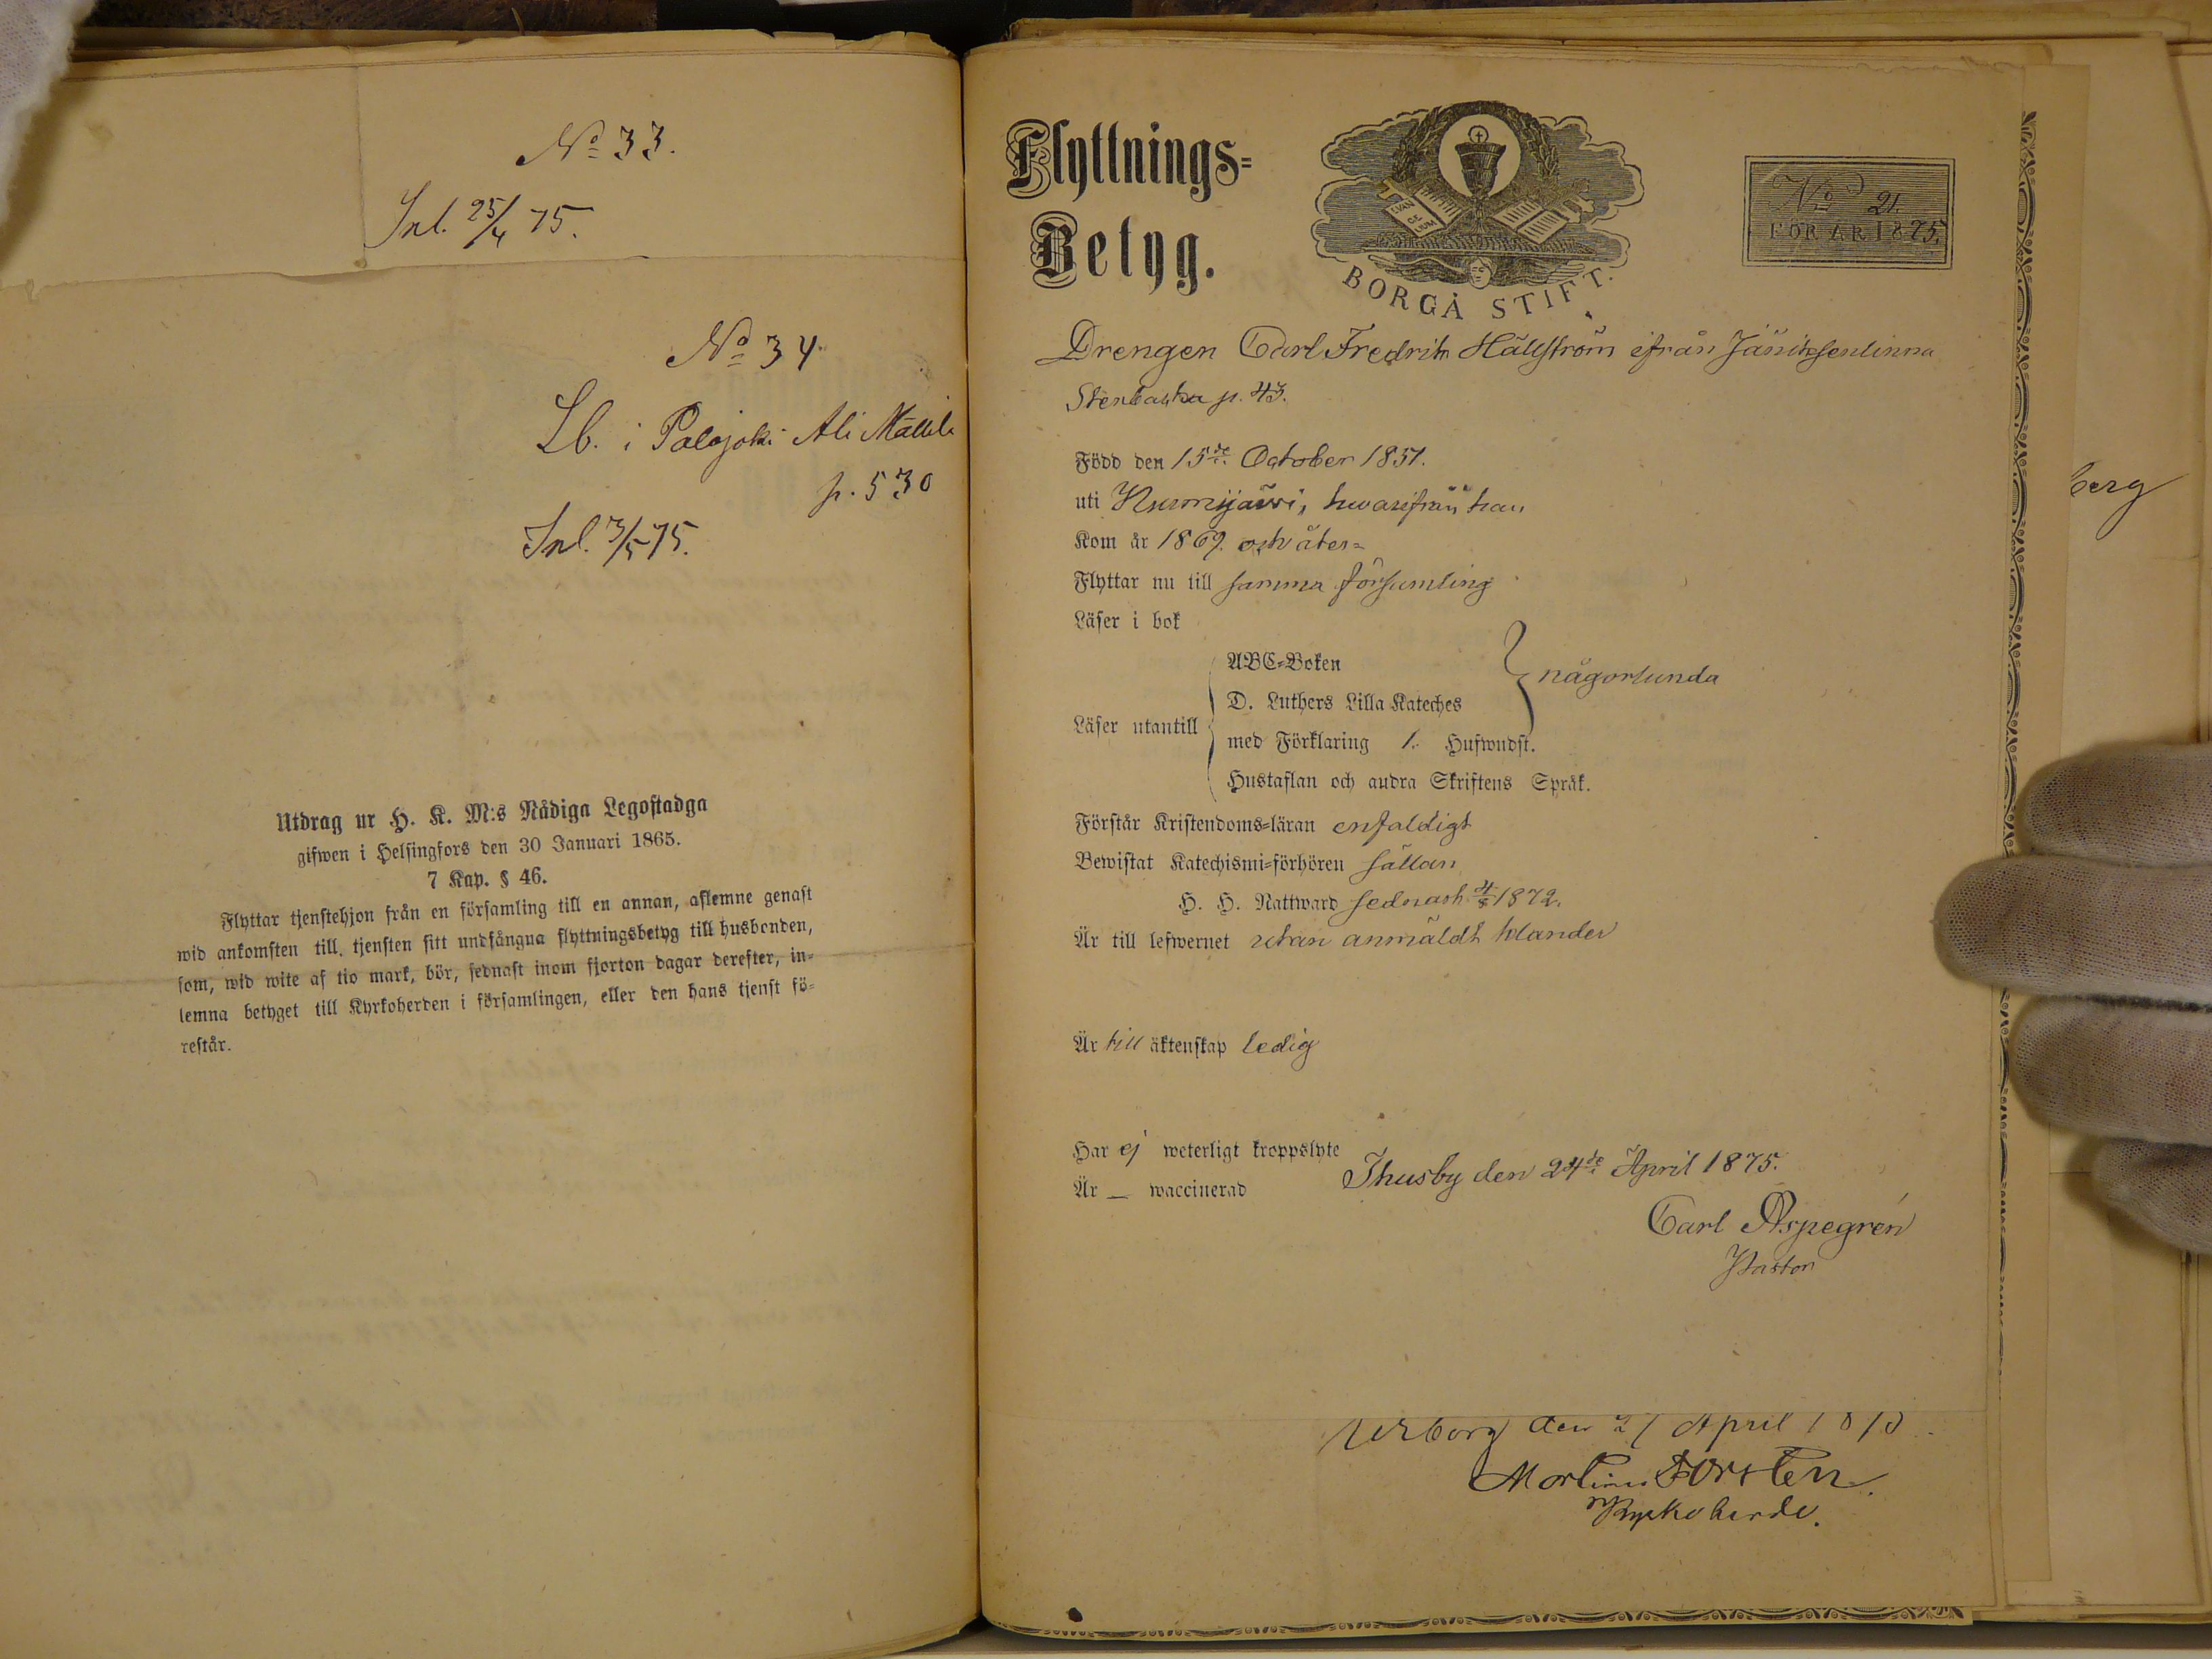 No 33.
Inl. 25/4 75.
No 34.
Lb. i Palojoki Ali Mattila
p. 530
Inl. 3/5 75.
Utdrag ur H. K. M:s Nådiga Legostadga
gifwen i Helsingfors den 30 Januari 1865.
7 Kap. § 46.
Flyttar tjenstehjon från en församling till en annan, aflemne genast
wid ankomsten till tjensten sitt undfångna flyttningsbetyg till husbonden,
som, wid wite af tio mark, bör, sednast inom fjorton dagar derefter, in-
lemna betyget till Kyrkoherden i församlingen, eller den hans tjenst fö-
restår.
Flyttnings-
Betyg.
EVAN
GE
LIUM
BORGÅ STIFT.
No 21.
FÖR ÅR 1875.
Drengen Carl Fredrik Hällström ifrån Jäniksenlinna
Stenbacka p. 43.
Född den 15de October 1851.
uti Nurmijärwi, hwarifrån han
Kom år 1869. och åter-
Flyttar nu till samma församling
Läser i bok
ABC-Boken
D. Luthers Lilla Kateches
någorlunda
Läser utantill
med Förklaring 1. Hufwudst.
Hustaflan och andra Skriftens Språk.
Förstår Kristendoms-läran enfaldigt
Bewistat Katechismi-förhören sällan
H. H. Nattward sednast 4/8 1872.
Är till lefwernet utan anmäldt klander
Är till äktenskap ledig
Har ej weterligt kroppslyte
Är — waccinerad
Thusby den 24de April 1875.
Carl Aspegrén
Pastor
den 21 April
Forstén.
Kyrkoherde.
berg